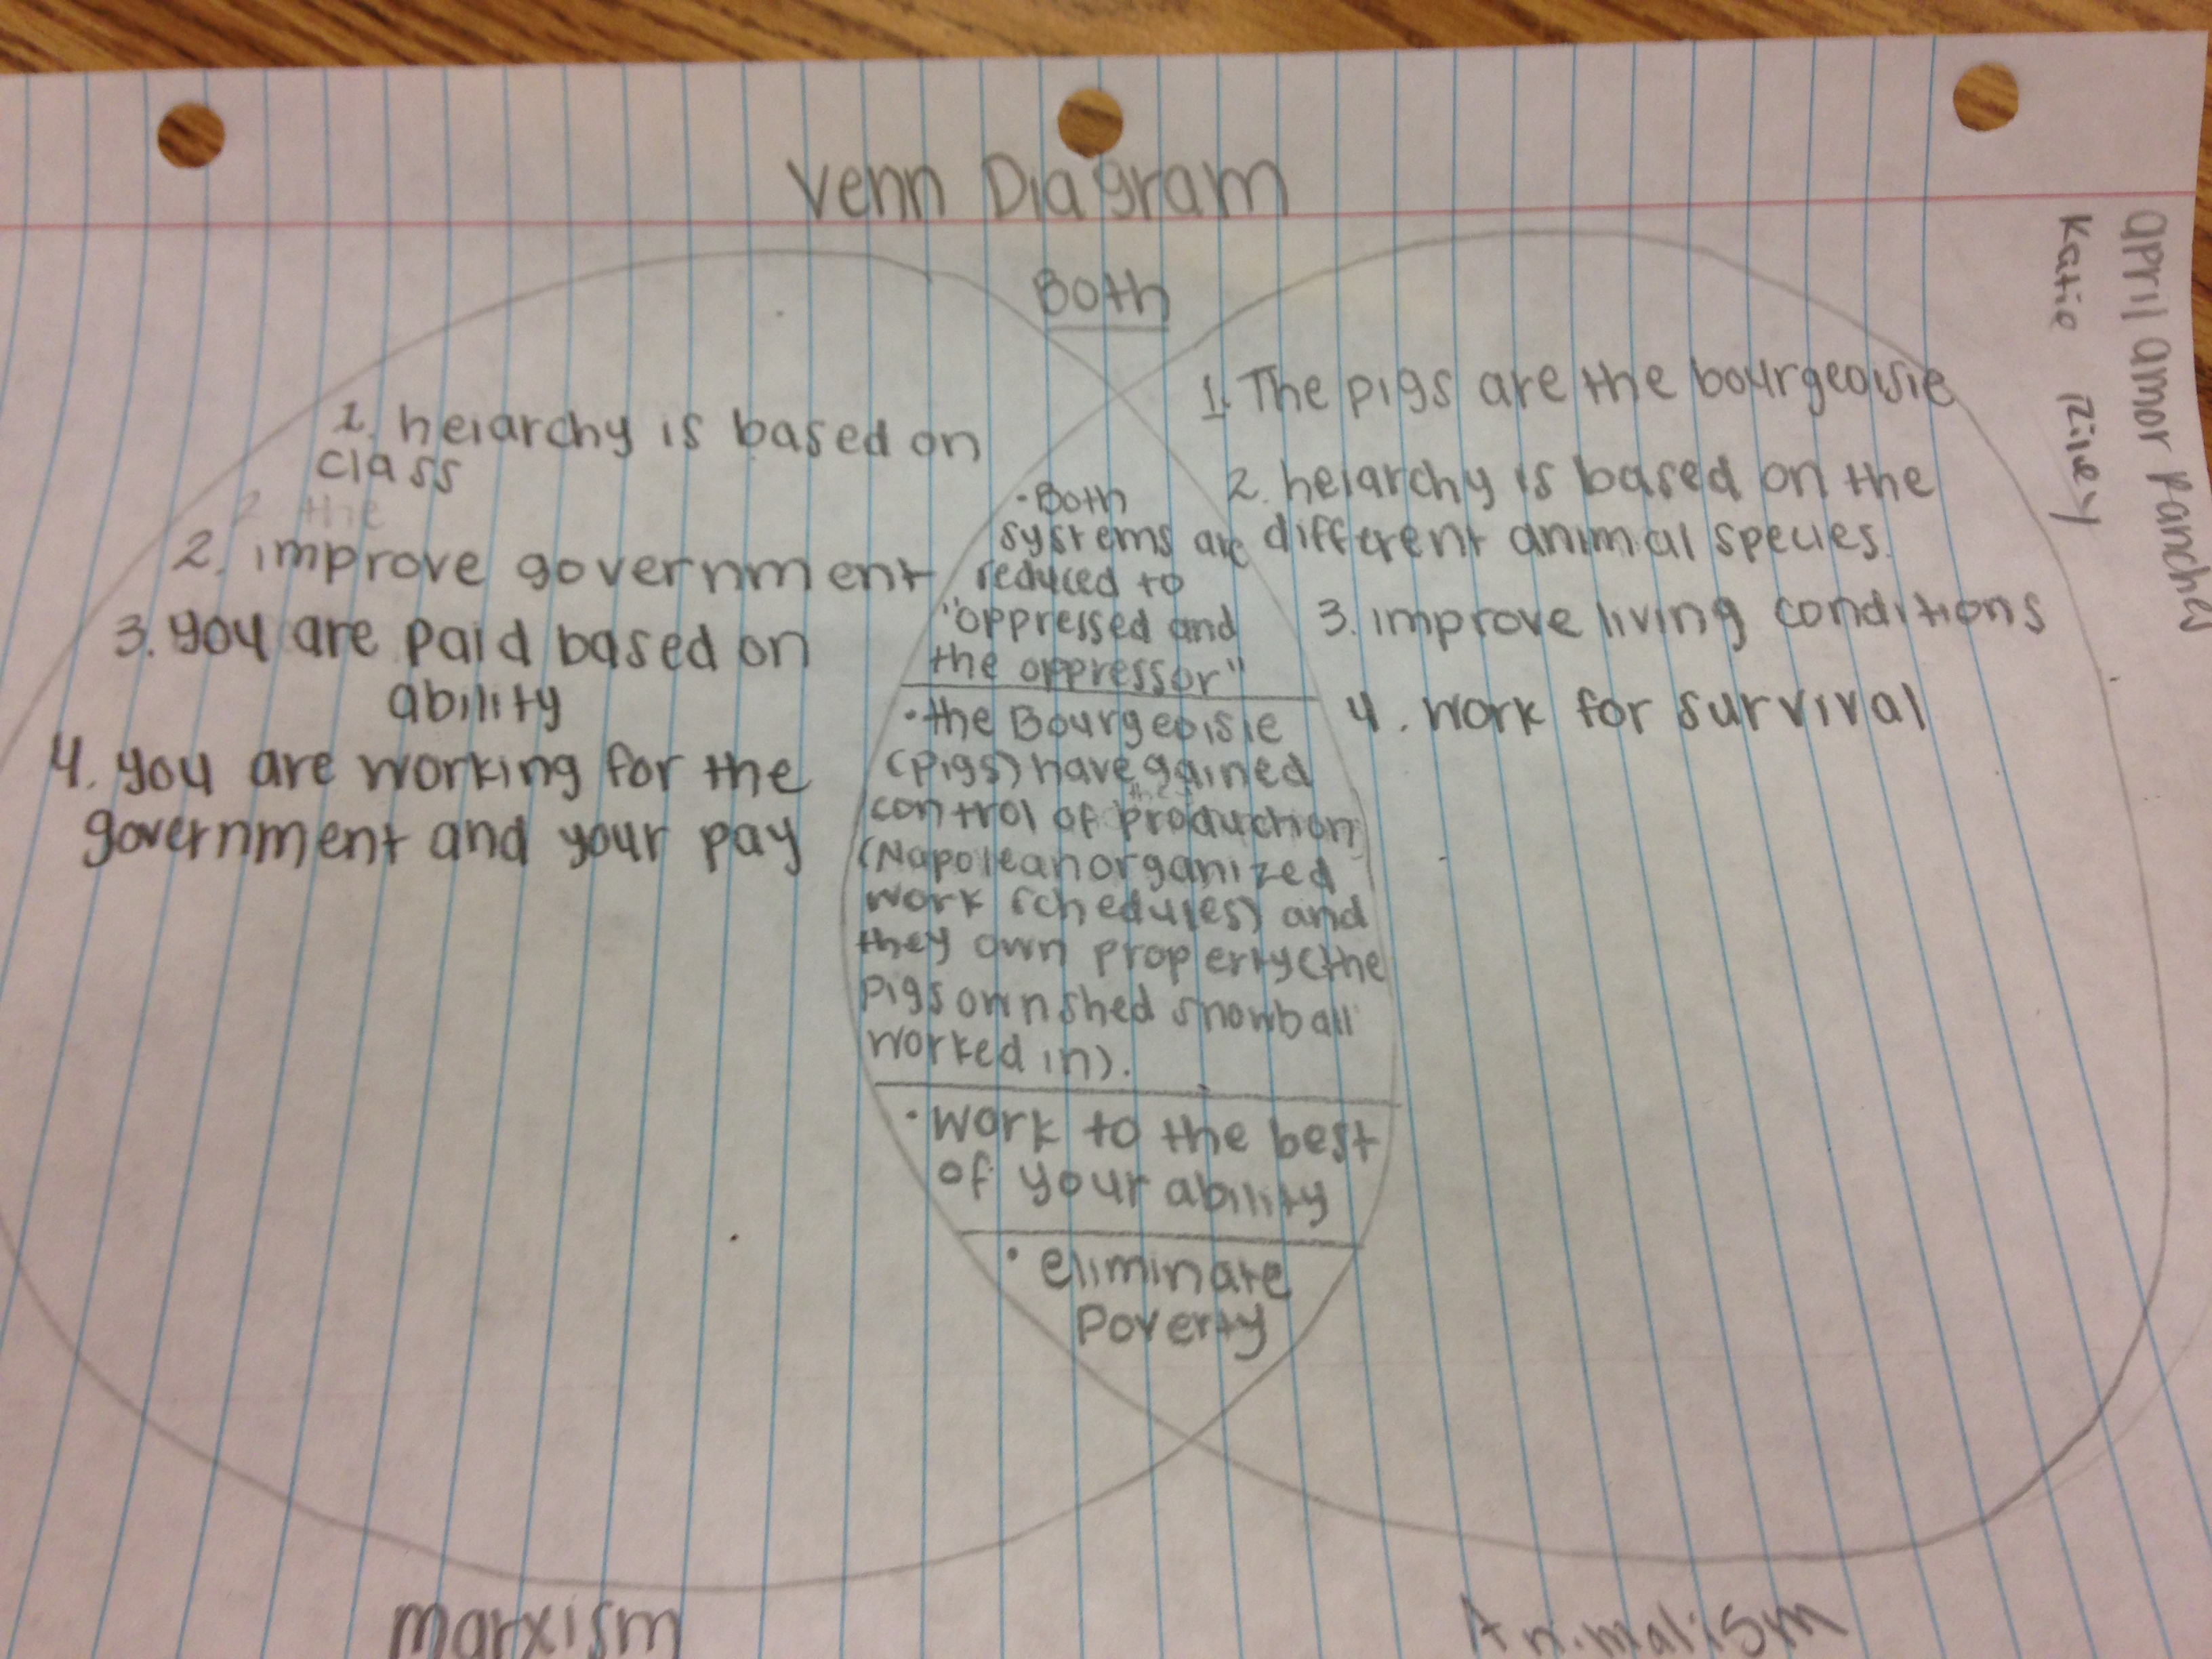 Venn Diagram
april amor Pancha
Katie Riley
Both
1. heiarchy is based on
class
2. the
2. improve government
3. you are paid based on
ability
4. you are working for the
government and your pay
• Both
systems are
reduced to
"oppressed and
the oppressor"
• the Bourgeoisie
(pigs) have gained
control of production
(Napolean organized
work schedules) and
they own property (the
pigs own shed snowball
worked in).
• work to the best
of your ability
• eliminate
poverty
1. The pigs are the bourgeoisie
2. heiarchy is based on the
different animal species.
3. improve living conditions
4. work for survival
marxism
Animalism